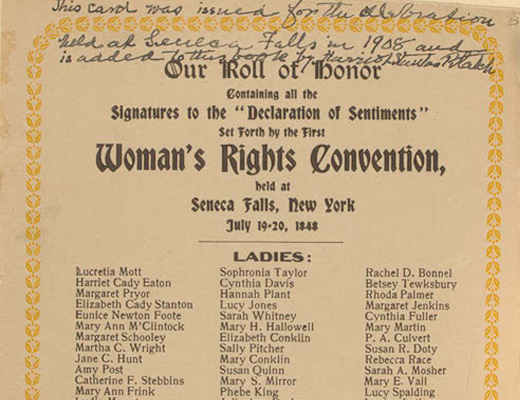 This card was issued for the celebration
held at Seneca Falls in 1908 and
is added to this book by Harriot Stanton Blatch
Our Roll of Honor
Containing all the
Signatures to the "Declaration of Sentiments"
Set Forth by the First
Woman's Rights Convention,
held at
Seneca Falls, New York
July 19-20, 1848
LADIES:
Lucretia Mott Sophronia Taylor Rachel D. Bonnel
Harriet Cady Eaton Cynthia Davis Betsey Tewksbury
Margaret Pryor Hannah Plant Rhoda Palmer
Elizabeth Cady Stanton Lucy Jones Margaret Jenkins
Eunice Newton Foote Sarah Whitney Cynthia Fuller
Mary Ann M'Clintock Mary H. Hallowell Mary Martin
Margaret Schooley Elizabeth Conklin P. A. Culvert
Martha C. Wright Sally Pitcher Susan R. Doty
Jane C. Hunt Mary Conklin Rebecca Race
Amy Post Susan Quinn Sarah A. Mosher
Catherine F. Stebbins Mary S. Mirror Mary E. Vail
Mary Ann Frink Phebe King Lucy Spalding